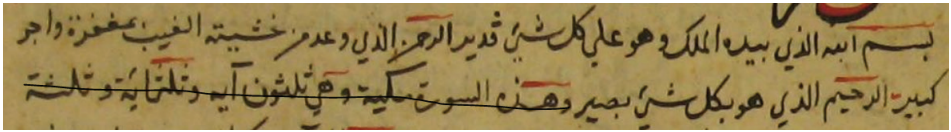 بسم الله الذي بيده الملك وهو علي كل شيئ قدير الرحمن الذي وعد من خشيته الغيب بمغفرة واجر
كبير الرحيم الذي هو بكل شيئ بصير وهذه السورة مكية وهي ثلثون آيه وثلثمائة وثلثة